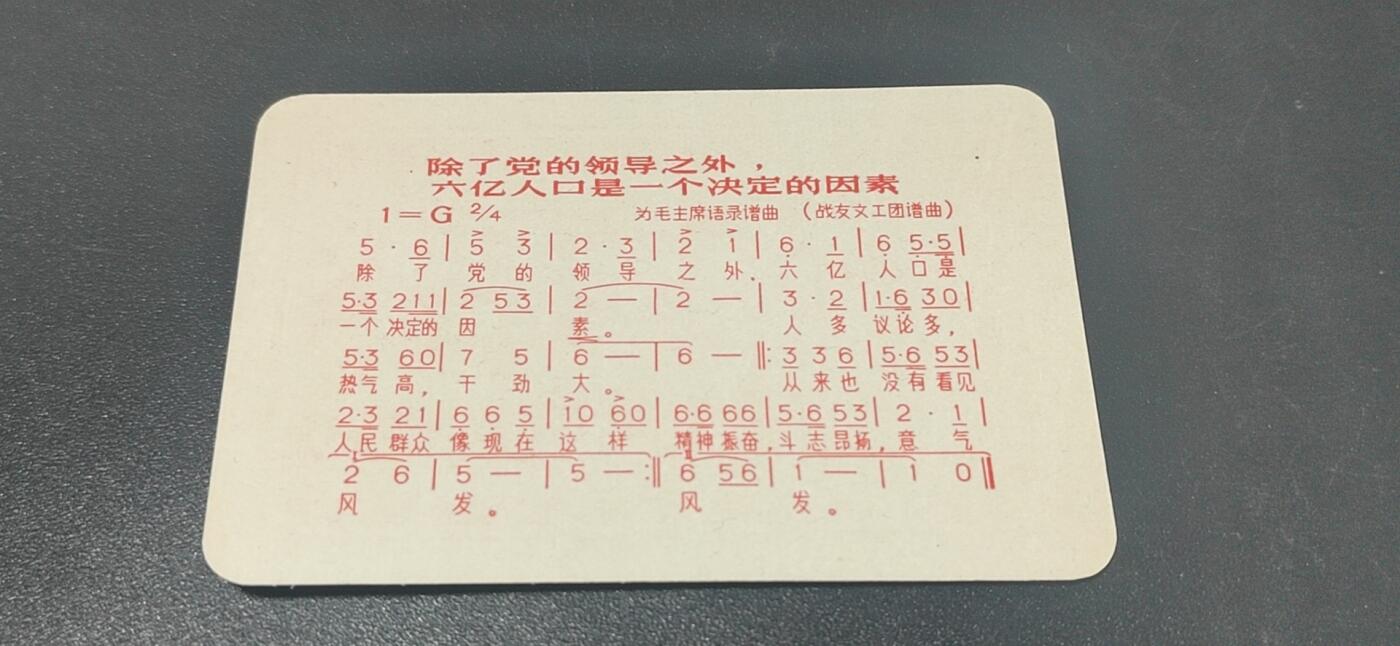 除了党的领导之外，
六亿人口是一个决定的因素
1=G 2/4 为毛主席语录谱曲 （战友文工团谱曲）
5 · 6 | 5 3 | 2 · 3 | 2 1 | 6 · 1 | 6 5·5 |
除 了 党 的 领 导 之 外、 六 亿 人 口 是
5·3 211 | 2 53 | 2 — | 2 — | 3 · 2 | 1·6 30 |
一个 决定的 因 素。 人 多 议论 多，
5·3 60 | 7 5 | 6 — | 6 — ‖: 3 3 6 | 5·6 53 |
热气 高， 干 劲 大。 从 来 也 没有 看见
2·3 21 | 6 6 5 | 10 60 | 6·6 66 | 5·6 53 | 2 · 1 |
人民 群众 像 现 在 这 样 精神 振奋，斗志 昂扬，意 气
2 6 | 5 — | 5 — :‖ 6 56 | 1 — | 1 0 ‖
风 发。 风 发。